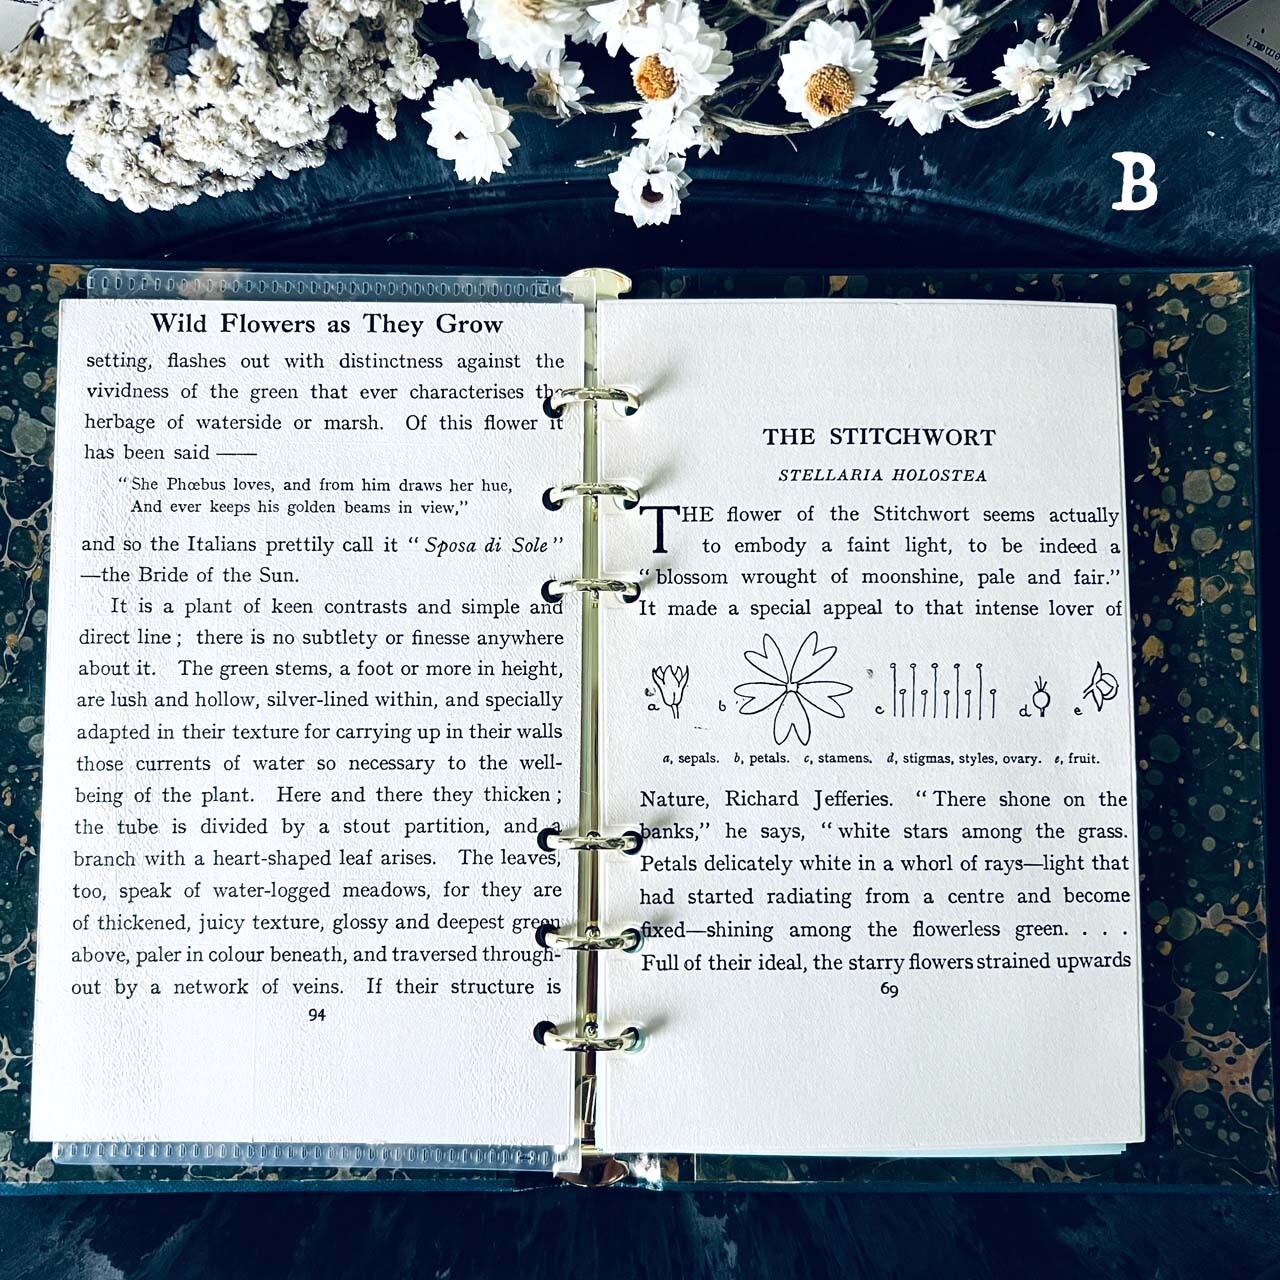 B
Wild Flowers as They Grow
setting, flashes out with distinctness against the
vividness of the green that ever characterises the
herbage of waterside or marsh. Of this flower it
has been said ——
“She Phœbus loves, and from him draws her hue,
And ever keeps his golden beams in view,”
and so the Italians prettily call it “Sposa di Sole”
—the Bride of the Sun.
It is a plant of keen contrasts and simple and
direct line; there is no subtlety or finesse anywhere
about it. The green stems, a foot or more in height,
are lush and hollow, silver-lined within, and specially
adapted in their texture for carrying up in their walls
those currents of water so necessary to the well-
being of the plant. Here and there they thicken;
the tube is divided by a stout partition, and a
branch with a heart-shaped leaf arises. The leaves,
too, speak of water-logged meadows, for they are
of thickened, juicy texture, glossy and deepest green
above, paler in colour beneath, and traversed through-
out by a network of veins. If their structure is
94
THE STITCHWORT
STELLARIA HOLOSTEA
THE flower of the Stitchwort seems actually
to embody a faint light, to be indeed a
“blossom wrought of moonshine, pale and fair.”
It made a special appeal to that intense lover of
a b c d e
a, sepals. b, petals. c, stamens. d, stigmas, styles, ovary. e, fruit.
Nature, Richard Jefferies. “There shone on the
banks,” he says, “white stars among the grass.
Petals delicately white in a whorl of rays—light that
had started radiating from a centre and become
fixed—shining among the flowerless green. . . .
Full of their ideal, the starry flowers strained upwards
69